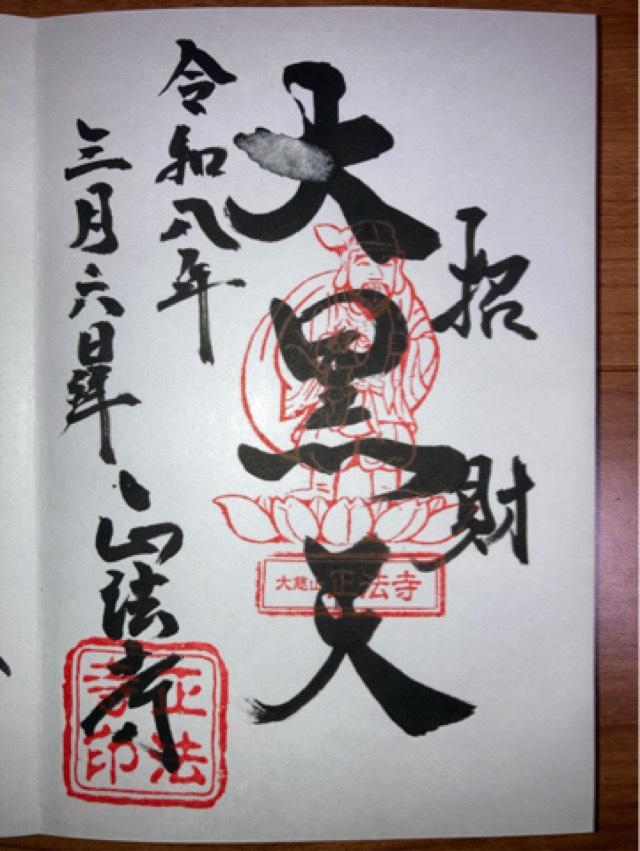 招財
大黒天
大慈山 正法寺
令和八年
三月六日拝
正法寺
正法寺印